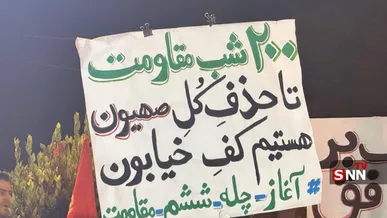 ۲۰۰ شب مقاومت
تا حذفِ کُلِ صهیون
هستیم کفِ خیابون
#آغاز_چله_ششم_مقاومت
SNN
TV